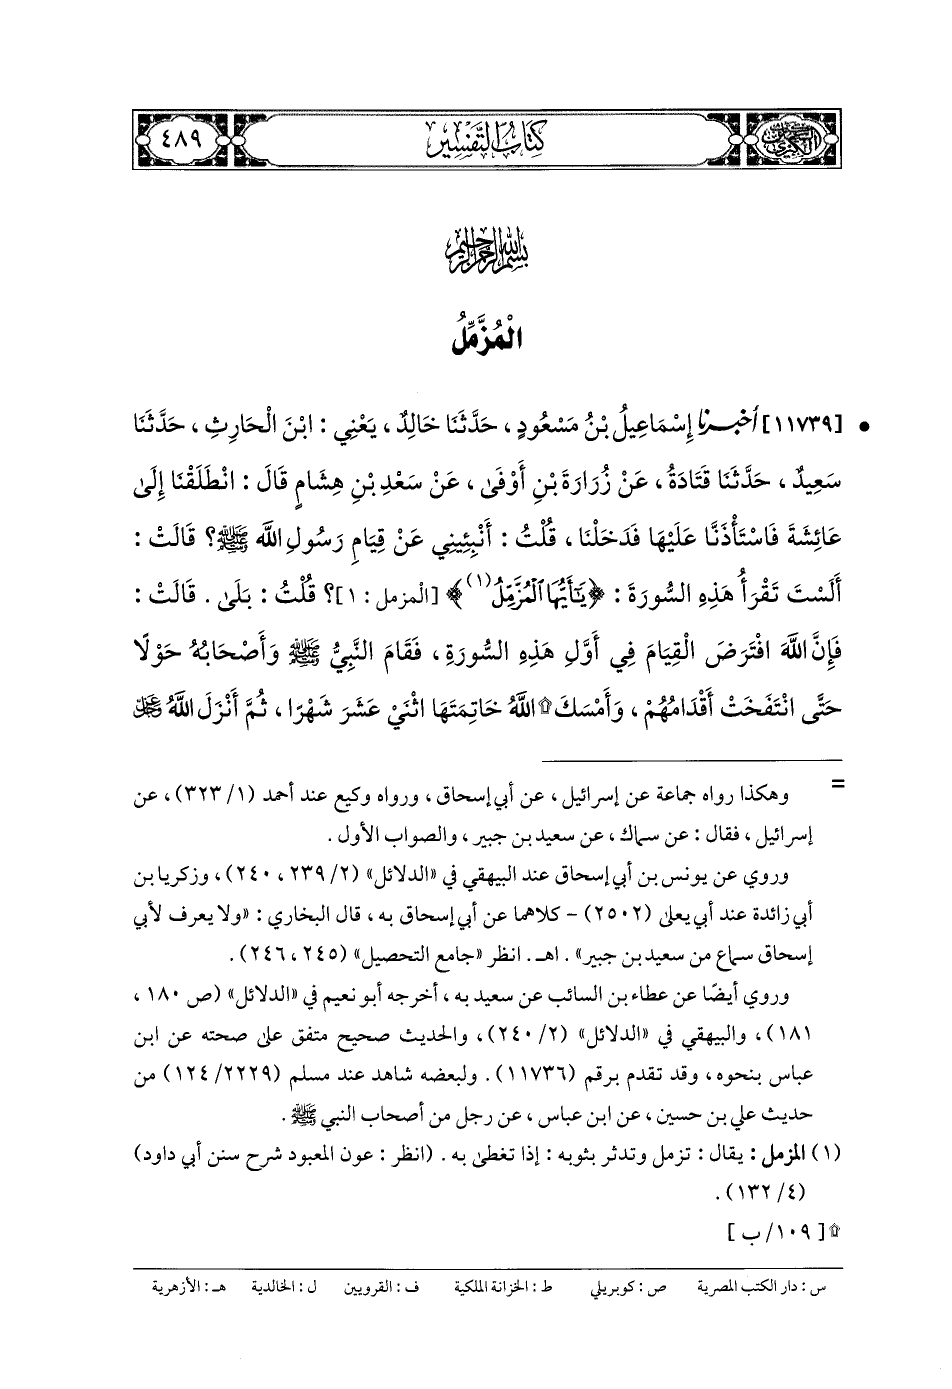 السنن الكبرى كتاب التفسير ٤٨٩
بسم الله الرحمن الرحيم
الْمُزَّمِّلُ
• [١١٧٣٩] أخبرنا إِسْمَاعِيلُ بْنُ مَسْعُودٍ، حَدَّثَنَا خَالِدٌ، يَعْنِي : ابْنَ الْحَارِثِ، حَدَّثَنَا
سَعِيدٌ، حَدَّثَنَا قَتَادَةُ، عَنْ زُرَارَةَ بْنِ أَوْفَى، عَنْ سَعْدِ بْنِ هِشَامٍ قَالَ : انْطَلَقْنَا إِلَى
عَائِشَةَ فَاسْتَأْذَنَّا عَلَيْهَا فَدَخَلْنَا، قُلْتُ : أَنْبِئِينِي عَنْ قِيَامِ رَسُولِ اللَّهِ ﷺ؟ قَالَتْ :
أَلَسْتَ تَقْرَأُ هَذِهِ السُّورَةَ : ﴿يَٰٓأَيُّهَا ٱلْمُزَّمِّلُ(١)﴾ [المزمل : ١]؟ قُلْتُ : بَلَى. قَالَتْ :
فَإِنَّ اللَّهَ افْتَرَضَ الْقِيَامَ فِي أَوَّلِ هَذِهِ السُّورَةِ، فَقَامَ النَّبِيُّ ﷺ وَأَصْحَابُهُ حَوْلًا
حَتَّى انْتَفَخَتْ أَقْدَامُهُمْ، وَأَمْسَكَ۩ اللَّهُ خَاتِمَتَهَا اثْنَيْ عَشَرَ شَهْرًا، ثُمَّ أَنْزَلَ اللَّهُ ﷻ
= وهكذا رواه جماعة عن إسرائيل، عن أبي إسحاق، ورواه وكيع عند أحمد (١/ ٣٢٣)، عن
إسرائيل، فقال : عن سماك، عن سعيد بن جبير، والصواب الأول.
وروي عن يونس بن أبي إسحاق عند البيهقي في «الدلائل» (٢/ ٢٣٩، ٢٤٠)، وزكريا بن
أبي زائدة عند أبي يعلى (٢٥٠٢) - كلاهما عن أبي إسحاق به، قال البخاري : «ولا يعرف لأبي
إسحاق سماع من سعيد بن جبير». اهـ. انظر «جامع التحصيل» (٢٤٥، ٢٤٦).
وروي أيضًا عن عطاء بن السائب عن سعيد به، أخرجه أبو نعيم في «الدلائل» (ص ١٨٠،
١٨١)، والبيهقي في «الدلائل» (٢/ ٢٤٠)، والحديث صحيح متفق على صحته عن ابن
عباس بنحوه، وقد تقدم برقم (١١٧٣٦). ولبعضه شاهد عند مسلم (٢٢٢٩/ ١٢٤) من
حديث علي بن حسين، عن ابن عباس، عن رجل من أصحاب النبي ﷺ.
(١) المزمل : يقال : تزمل وتدثر بثوبه : إذا تغطى به. (انظر : عون المعبود شرح سنن أبي داود)
(٤/ ١٣٢).
۩ [١٠٩/ ب]
س : دار الكتب المصرية ص : كوبريلي ط : الخزانة الملكية ف : القرويين ل : الخالدية هـ : الأزهرية